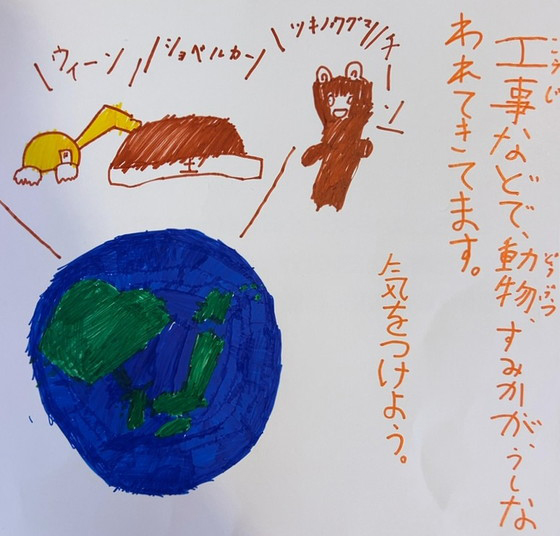 こうじ どうぶつ
工事などで、動物、すみかが、うしな
われてきてます。
気をつけよう。
ツキノワグマ
チーン
ショベルカー
ウィーン
土